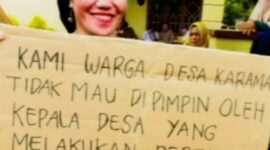 KAMI WARGA DESA KARAMA
TIDAK MAU DIPIMPIN OLEH
KEPALA DESA YANG
MELAKUKAN